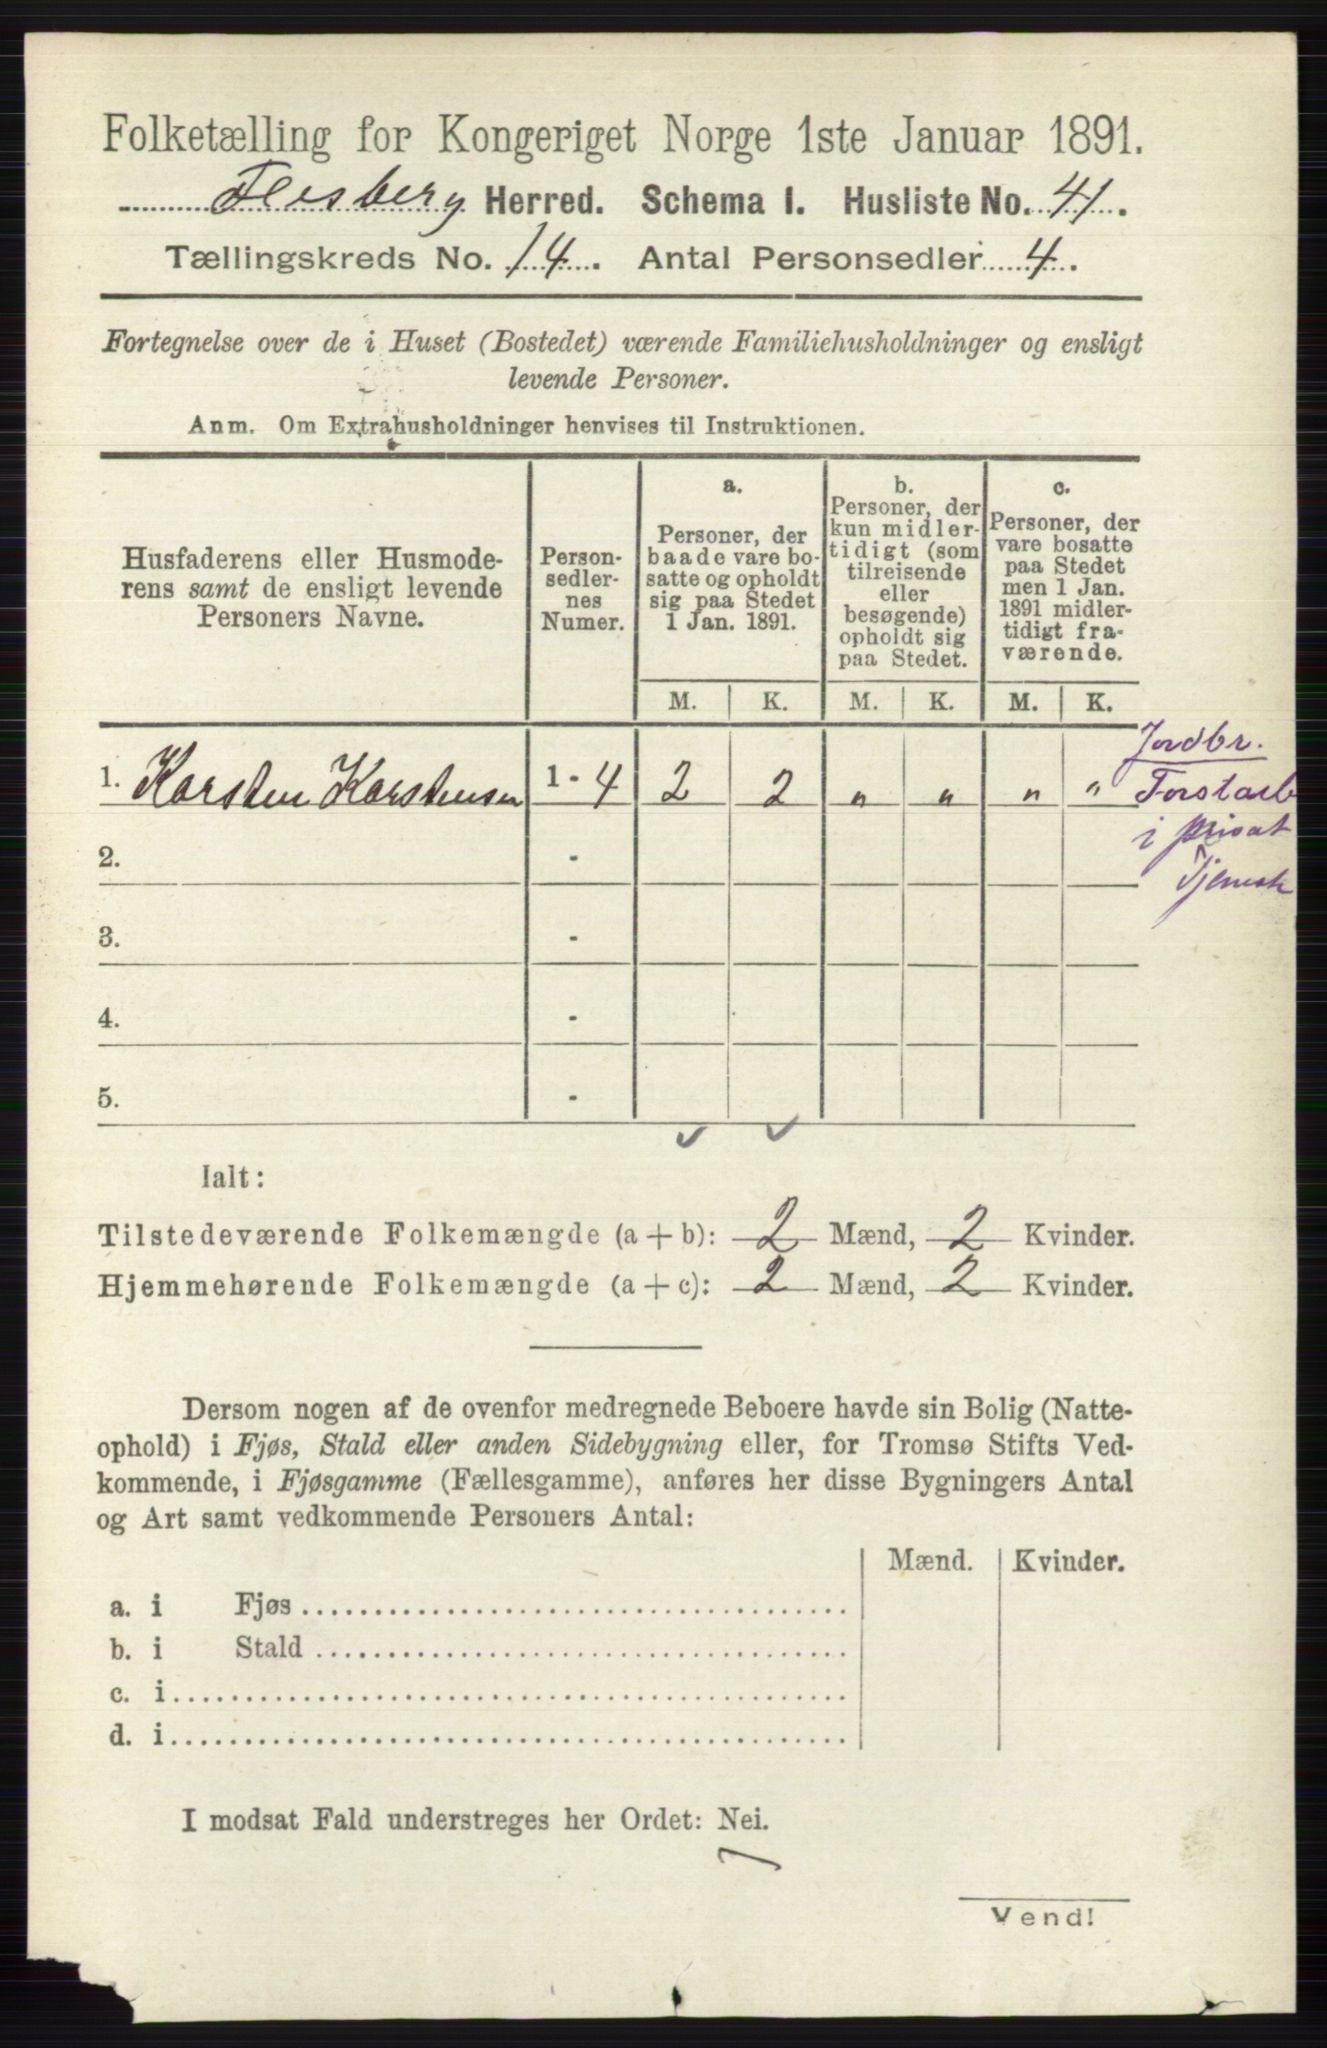 Folketælling for Kongeriget Norge 1ste Januar 1891.
Flesberg Herred. Schema I. Husliste No. 41.
Tællingskreds No. 14. Antal Personsedler 4.
Fortegnelse over de i Huset (Bostedet) værende Familiehusholdninger og ensligt
levende Personer.
Anm. Om Extrahusholdninger henvises til Instruktionen.
Husfaderens eller Husmode-
rens samt de ensligt levende
Personers Navne.
Person-
sedler-
nes
Numer.
a.
Personer, der
baade vare bo-
satte og opholdt
sig paa Stedet
1 Jan. 1891.
b.
Personer, der
kun midler-
tidigt (som
tilreisende
eller
besøgende)
opholdt sig
paa Stedet.
c.
Personer, der
vare bosatte
paa Stedet
men 1 Jan.
1891 midler-
tidigt fra-
værende.
M. K. M. K. M. K.
1. Karsten Karstensen 1 - 4 2 2 „ „ „ „
Jordbr.
Forstarb
i privat
Tjeneste
2. -
3. -
4. -
5. -
Ialt:
Tilstedeværende Folkemængde (a + b): 2 Mænd, 2 Kvinder.
Hjemmehørende Folkemængde (a + c): 2 Mænd, 2 Kvinder.
Dersom nogen af de ovenfor medregnede Beboere havde sin Bolig (Natte-
ophold) i Fjøs, Stald eller anden Sidebygning eller, for Tromsø Stifts Ved-
kommende, i Fjøsgamme (Fællesgamme), anføres her disse Bygningers Antal
og Art samt vedkommende Personers Antal:
Mænd. Kvinder.
a. i Fjøs
b. i Stald
c. i
d. i
I modsat Fald understreges her Ordet: Nei.
Vend!